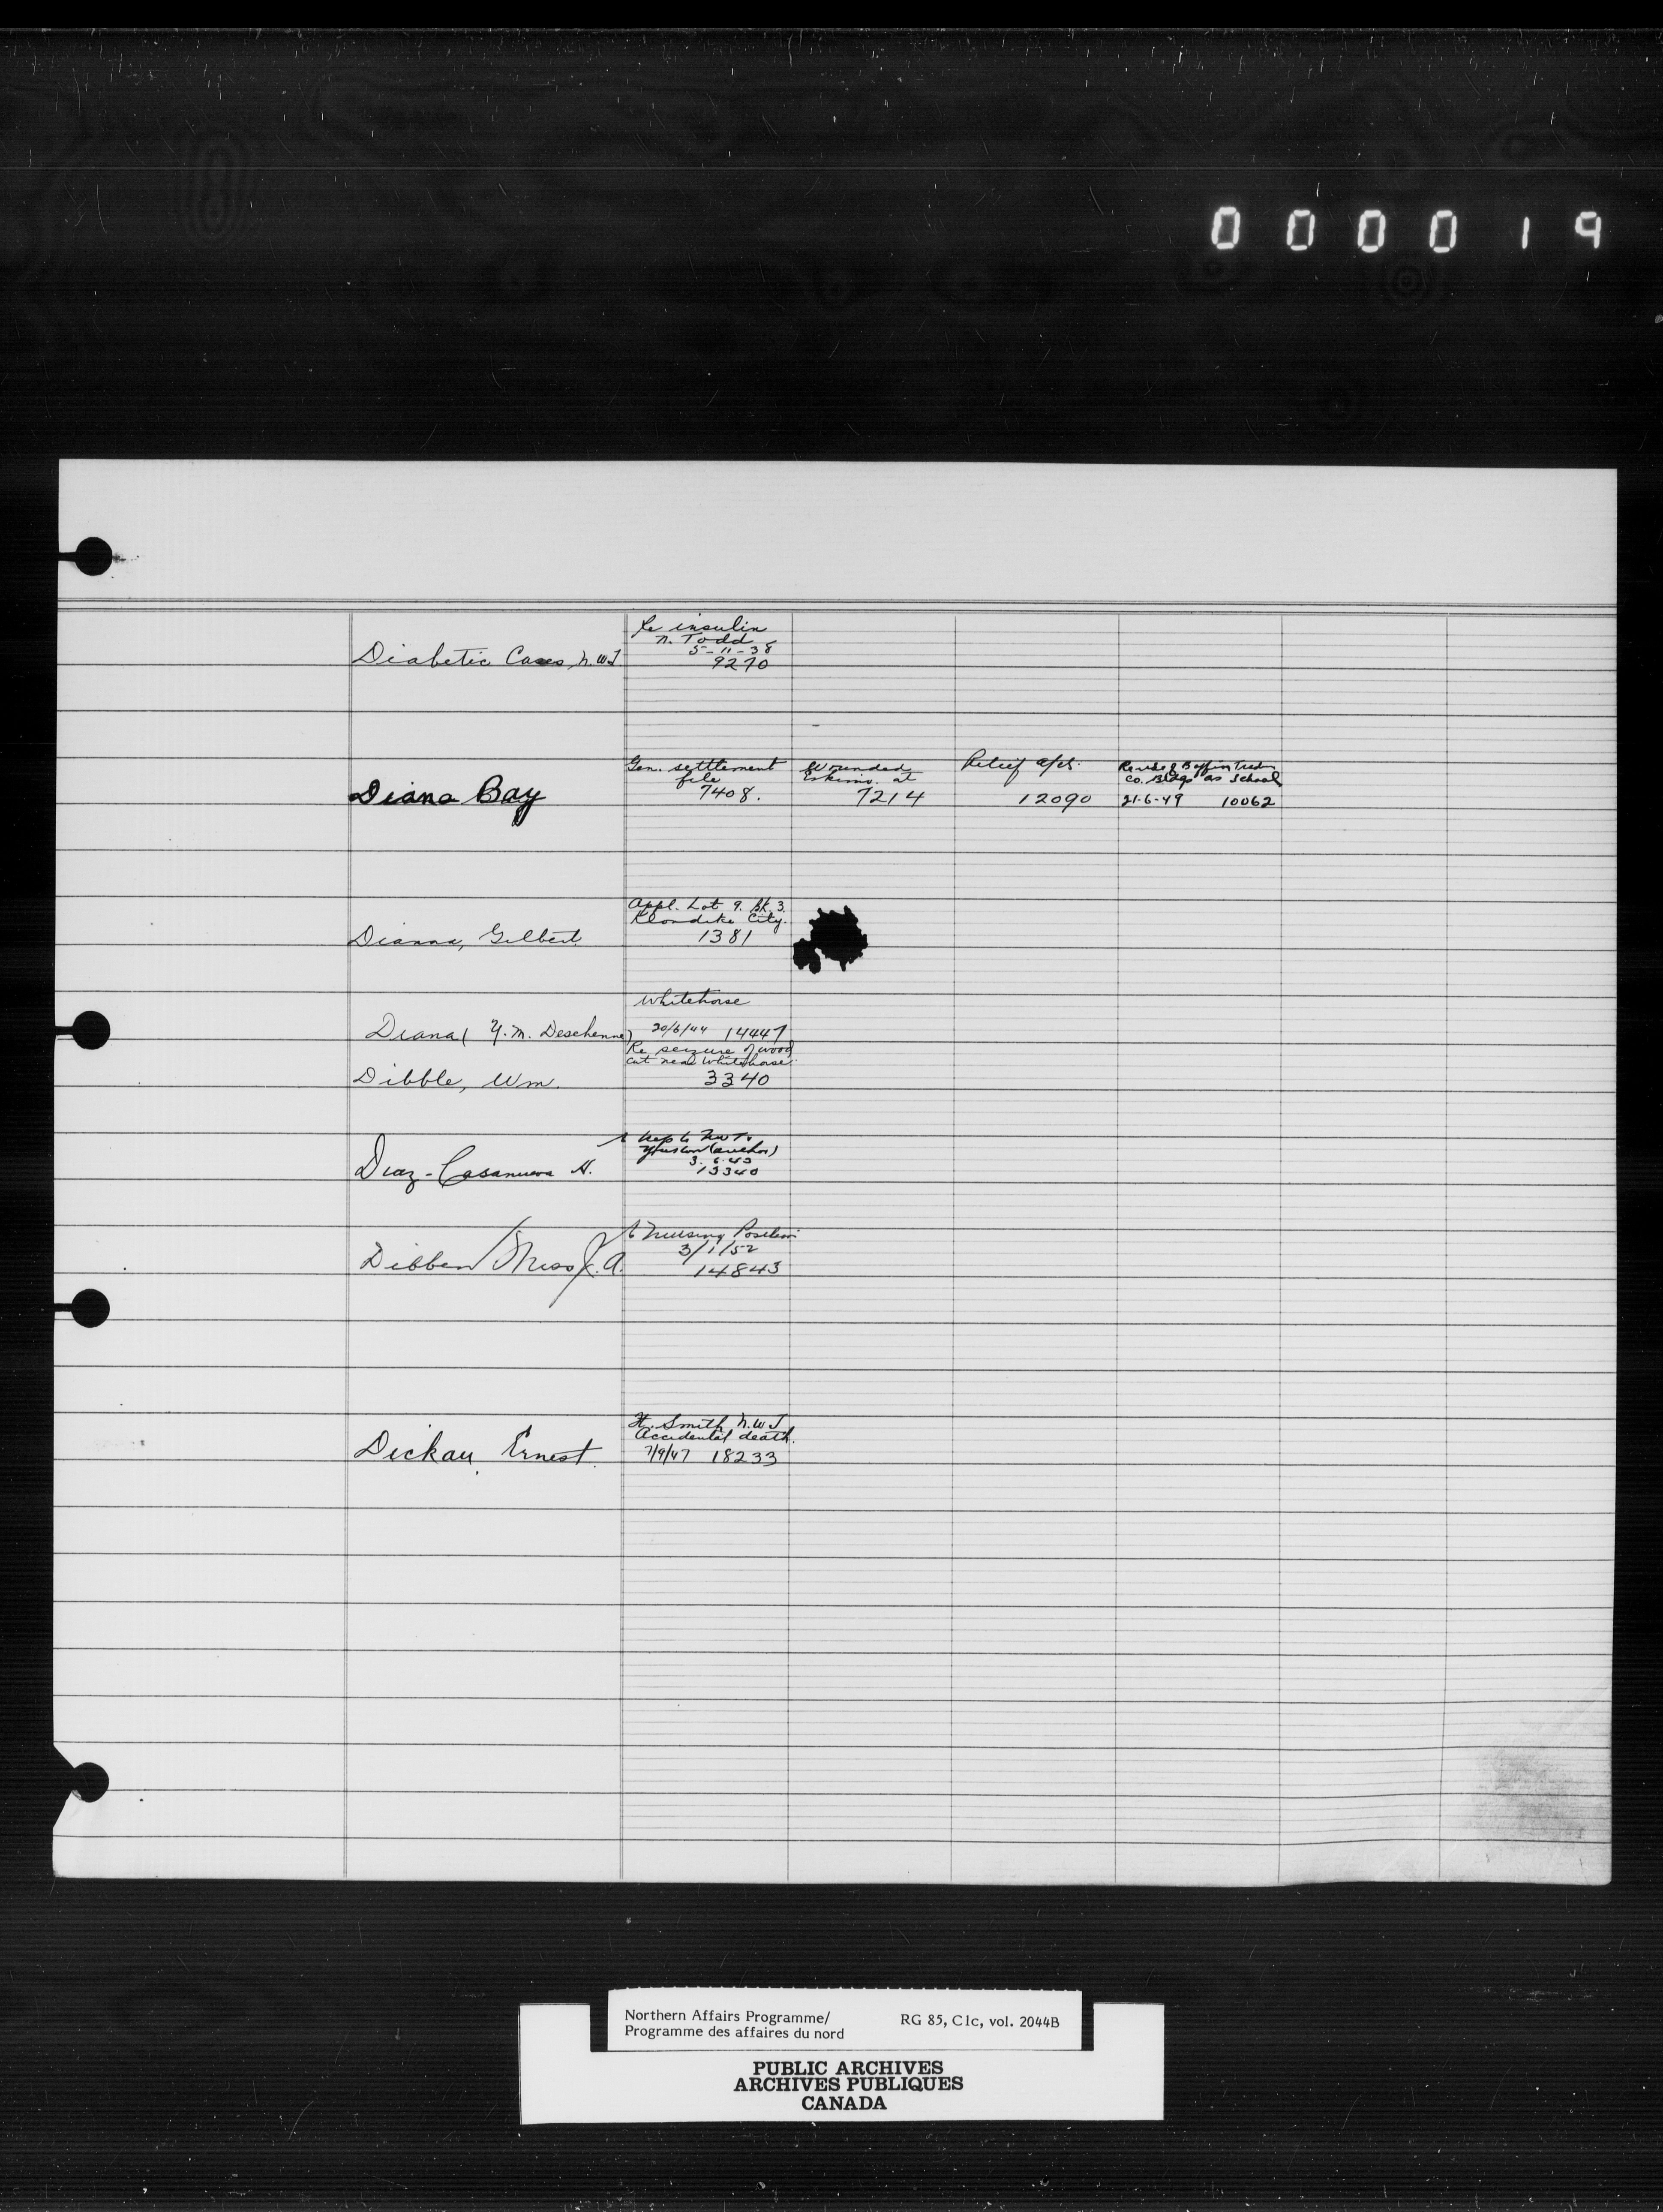 000019
Re insulin
N. Todd
5-11-38
Diabetic Cases, N.W.T.
9270
Gen. settlement
file
7408.
Wounded
Eskimo at
7214
Relief a/cs.
12090
Re use of Baffin Trading
Co. Bldgs as School
21-6-49 10062
Diana Bay
Appl. Lot 9. Bk. 3.
Klondike City.
Dianna, Gilbert
1381
Whitehorse
Diana ( Y. M. Deschenne)
20/6/44 14447
Re seizure of wood
cut near Whitehorse.
Dibble, Wm.
3340
N.W.T.
Yukon
3.6.43
Diaz-Casanueva H.
13340
Nursing Position
3/1/52
Dibben Miss A.
14843
Ft. Smith, N.W.T
Accidental death.
Dickau, Ernest.
7/9/47 18233
Northern Affairs Programme/
Programme des affaires du nord
RG 85, C1c, vol. 2044B
PUBLIC ARCHIVES
ARCHIVES PUBLIQUES
CANADA